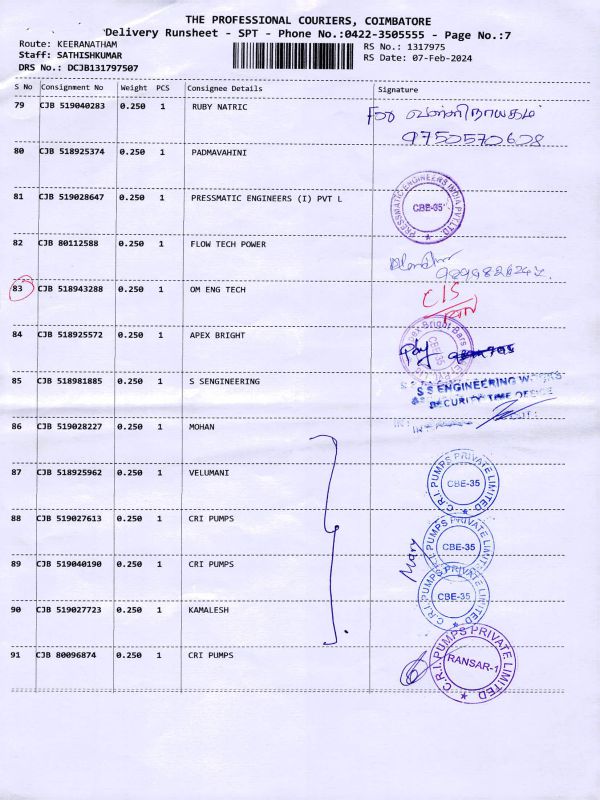 THE PROFESSIONAL COURIERS, COIMBATORE
Delivery Runsheet - SPT - Phone No.:0422-3505555 - Page No.:7
Route: KEERANATHAM RS No.: 1317975
Staff: SATHISHKUMAR RS Date: 07-Feb-2024
DRS No.: DCJB131797507
S No Consignment No Weight PCS Consignee Details Signature
79 CJB 519040283 0.250 1 RUBY NATRIC For
9752570608
80 CJB 518925374 0.250 1 PADMAVAHINI
81 CJB 519028647 0.250 1 PRESSMATIC ENGINEERS (I) PVT L
PRESSMATIC ENGINEERS INDIA PVT LTD. CBE-35
82 CJB 80112588 0.250 1 FLOW TECH POWER
83 CJB 518943288 0.250 1 OM ENG TECH C/S
RTN
84 CJB 518925572 0.250 1 APEX BRIGHT
Apex Bright Bars CBE-35
85 CJB 518981885 0.250 1 S SENGINEERING
S S ENGINEERING WORKS
SECURITY TIME OFFICE
86 CJB 519028227 0.250 1 MOHAN
87 CJB 518925962 0.250 1 VELUMANI
C.R.I. PUMPS PRIVATE LIMITED CBE-35
88 CJB 519027613 0.250 1 CRI PUMPS
C.R.I. PUMPS PRIVATE LIMITED CBE-35
89 CJB 519040190 0.250 1 CRI PUMPS
Mary
C.R.I. PUMPS PRIVATE LIMITED CBE-35
90 CJB 519027723 0.250 1 KAMALESH
91 CJB 80096874 0.250 1 CRI PUMPS
C.R.I. PUMPS PRIVATE LIMITED RANSAR-1